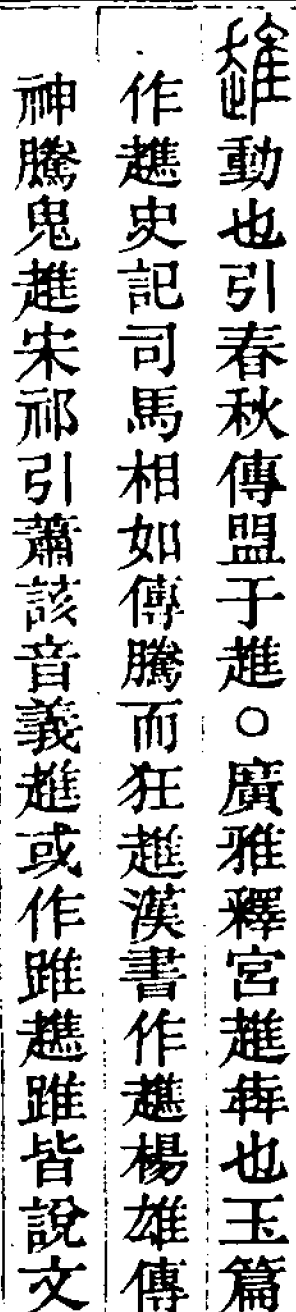 趡動也引春秋傳盟于趡○廣雅釋宮趡犇也玉篇
作趭史記司馬相如傳騰而狂趡漢書作趭楊雄傳
神騰鬼趡宋祁引蕭該音義趡或作踓趭踓皆說文